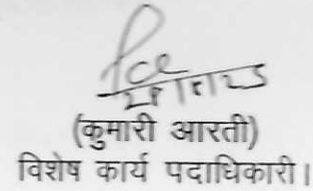 (कुमारी आरती)
विशेष कार्य पदाधिकारी।